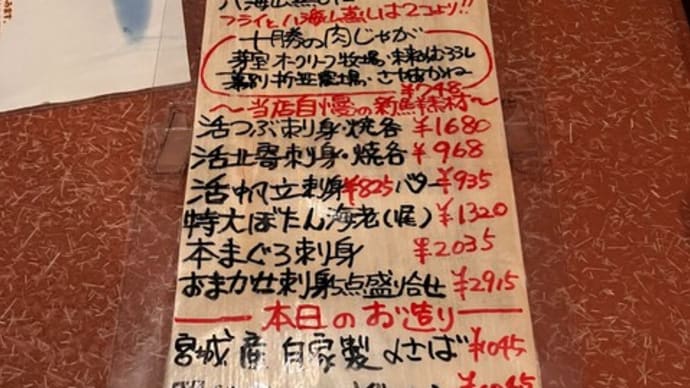 フライと八海山蒸しは2コより!!
十勝の肉じゃが
芽室オークリーフ牧場・未来めむろうし
幕別折笠農場・さやあかね
¥748
〜当店自慢の新鮮素材〜
活つぶ刺身・焼各 ¥1680
活北寄刺身・焼各 ¥968
活帆立刺身¥825 バター¥935
特大ぼたん海老(1尾) ¥1320
本まぐろ刺身 ¥2035
おまかせ刺身5点盛り合せ ¥2915
本日のお造り
宮城産自家製〆さば ¥1045